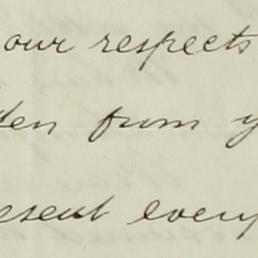 our respects
from y
esent every